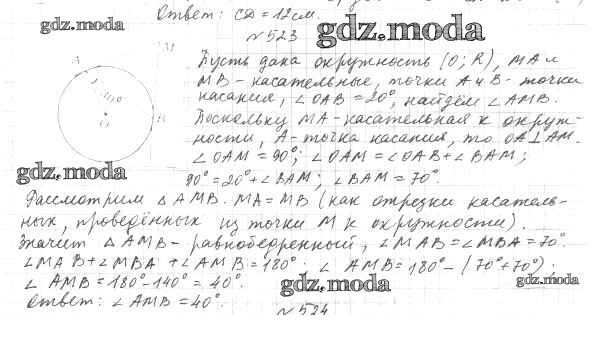 Ответ: CD = 12см.
gdz.moda
gdz.moda
№523
M
Пусть дана окружность (O; R), MA и
A
MB - касательные, точки A и B - точки
касания, ∠OAB = 20°, найдём ∠AMB.
B
Поскольку MA - касательная к окруж-
O
ности, A - точка касания, то OA⊥AM.
∠OAM = 90°; ∠OAM = ∠OAB + ∠BAM;
gdz.moda
90° = 20° + ∠BAM; ∠BAM = 70°.
Рассмотрим △AMB. MA = MB (как отрезки касатель-
ных, проведённых из точки M к окружности).
Значит △AMB - равнобедренный, ∠MAB = ∠MBA = 70°.
∠MAB + ∠MBA + ∠AMB = 180°. ∠AMB = 180° - (70° + 70°).
∠AMB = 180° - 140° = 40°.
gdz.moda
gdz.moda
Ответ: ∠AMB = 40°.
№524